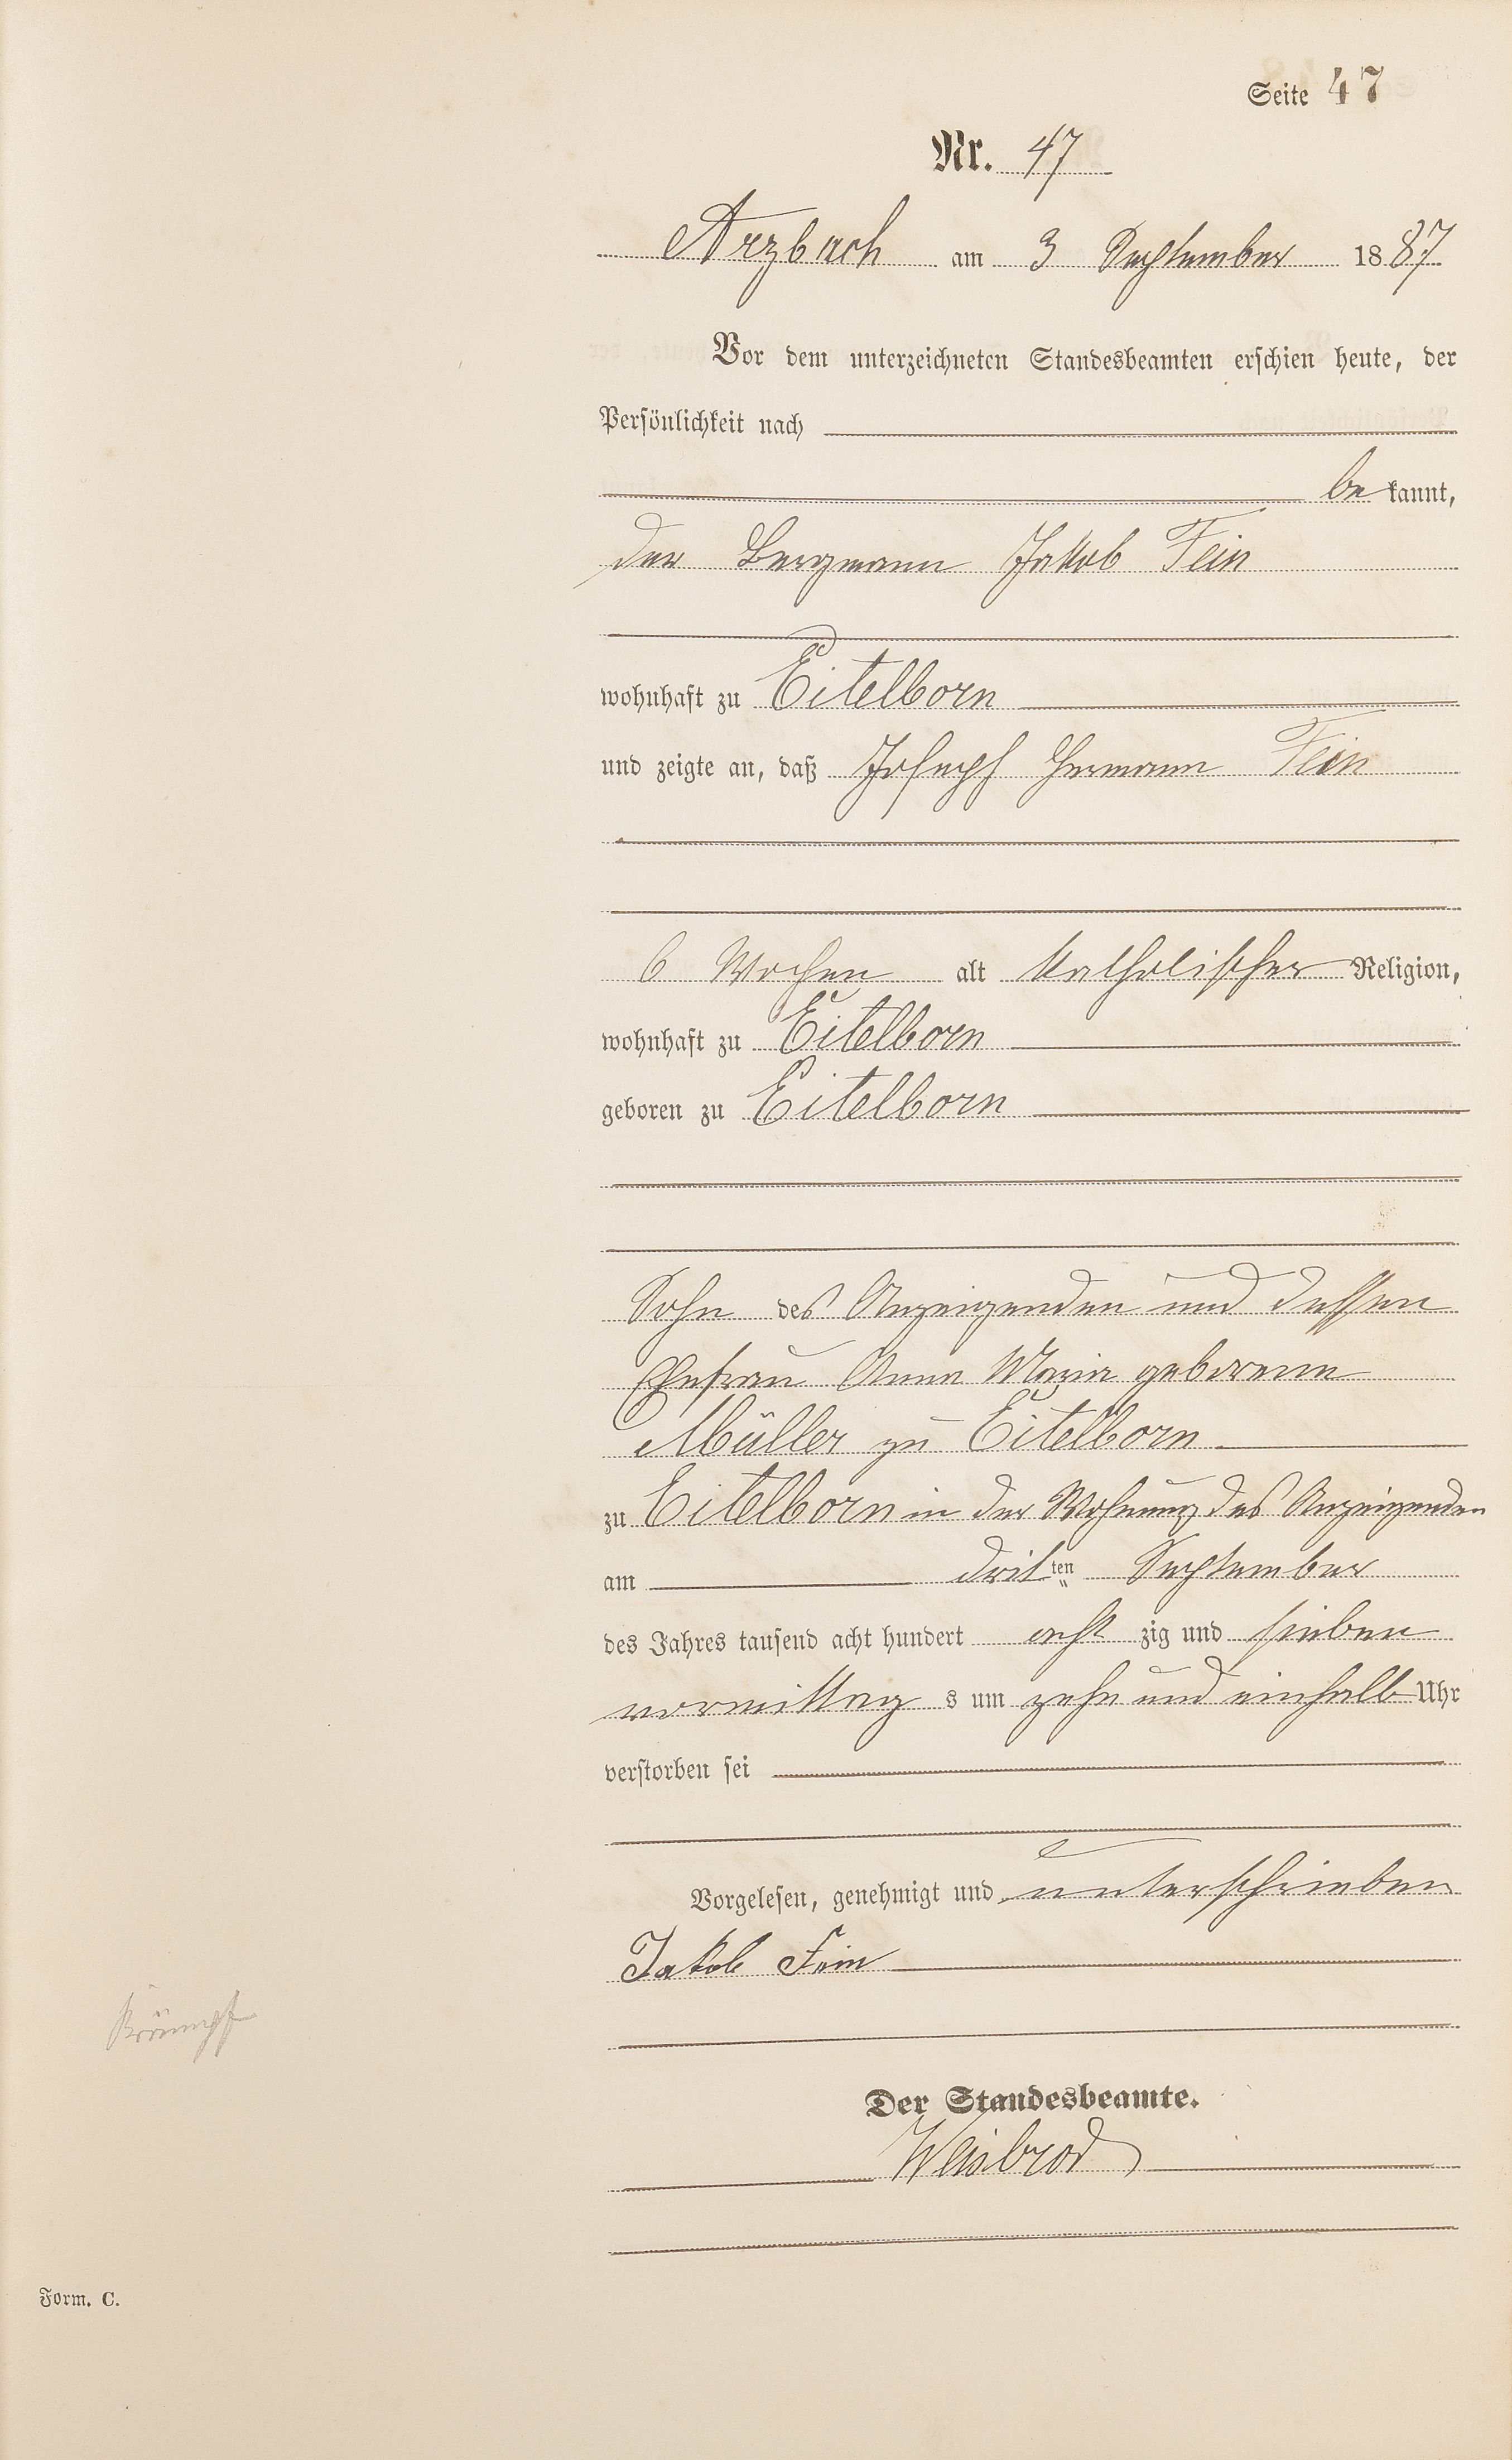 Seite 47
Nr. 47
Arzbach am 3 September 1887
Vor dem unterzeichneten Standesbeamten erschien heute, der
Persönlichkeit nach
bekannt,
der Bergmann Jakob Fein
wohnhaft zu Eitelborn
und zeigte an, daß Joseph Hermann Fein
6 Wochen alt katholischer Religion,
wohnhaft zu Eitelborn
geboren zu Eitelborn
Sohn des Anzeigenden und dessen
Ehefrau Anna Maria geborene
Müller zu Eitelborn
zu Eitelborn in der Wohnung des Anzeigenden
am dritten September
des Jahres tausend acht hundert acht zig und sieben
vormittag s um zehn und einhalb Uhr
verstorben sei
Vorgelesen, genehmigt und unterschrieben
Jakob Fein
Krämpf
Der Standesbeamte.
Weisbrod
Form. C.